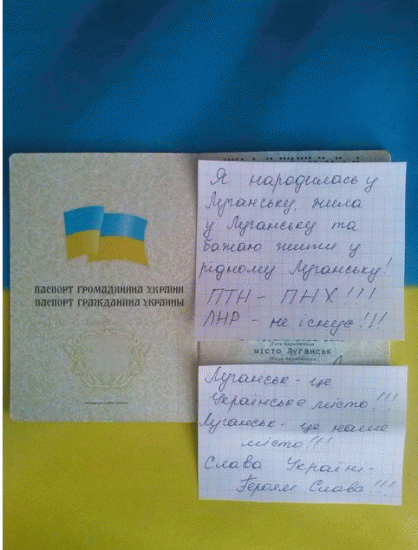 ПАСПОРТ ГРОМАДЯНИНА УКРАЇНИ
ПАСПОРТ ГРАЖДАНИНА УКРАИНЫ
Я народилась у
Луганську, жила
у Луганську та
бажаю жити у
рідному Луганську!
ПТН - ПНХ!!!
ЛНР - не існує!!!
місто Луганськ
Луганськ - це
Українське місто!!!
Луганськ - це наше
місто!!!
Слава Україні -
Героям Слава!!!